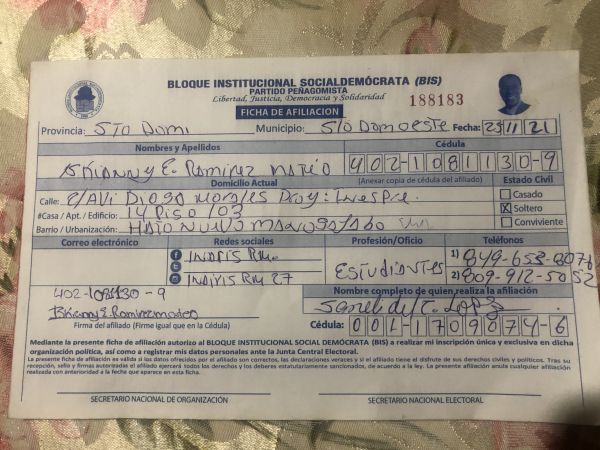 BLOQUE INSTITUCIONAL SOCIALDEMÓCRATA (BIS)
PARTIDO PEÑAGOMISTA
Libertad, Justicia, Democracia y Solidaridad
188183
FICHA DE AFILIACION
Provincia: STO Domi Municipio: S/o Domoeste Fecha: 23/11/21
Nombres y Apellidos Cédula
E. Ramirez Mateo 402-1081130-9
Domicilio Actual (Anexar copia de cédula del afiliado) Estado Civil
Calle: C/AVI Diogo Morales Proy: Inespre
#Casa / Apt. / Edificio: 14 Piso /03
Barrio / Urbanización: HATO NUEVO
Casado
X Soltero
Conviviente
Correo electrónico Redes sociales Profesión/Oficio Teléfonos
INDIRIS RM.
27
Estudiantes
1) 849-658-8076
2) 809-912-5052
402-1081130-9
E Ramirez mateo
Firma del afiliado (Firme igual que en la Cédula)
Nombre completo de quien realiza la afiliación
Cédula: 001-1709074-6
Mediante la presente ficha de afiliación autorizo al BLOQUE INSTITUCIONAL SOCIAL DEMÓCRATA (BIS) a realizar mi inscripción única y exclusiva en dicha
organización política, así como a registrar mis datos personales ante la Junta Central Electoral.
La presente ficha de afiliación es válida si los datos ofrecidos por el afiliado son correctos, las declaraciones veraces y si el afiliado tiene el disfrute de sus derechos civiles y políticos. Tras su
recepción, sello y firmas autorizadas el afiliado ejercerá todos los derechos y los deberes estatutariamente sancionados, de acuerdo a la ley. La presente afiliación anula cualquier afiliación
realizada con anterioridad a la fecha que aparece en esta ficha.
SECRETARIO NACIONAL DE ORGANIZACIÓN SECRETARIO NACIONAL ELECTORAL